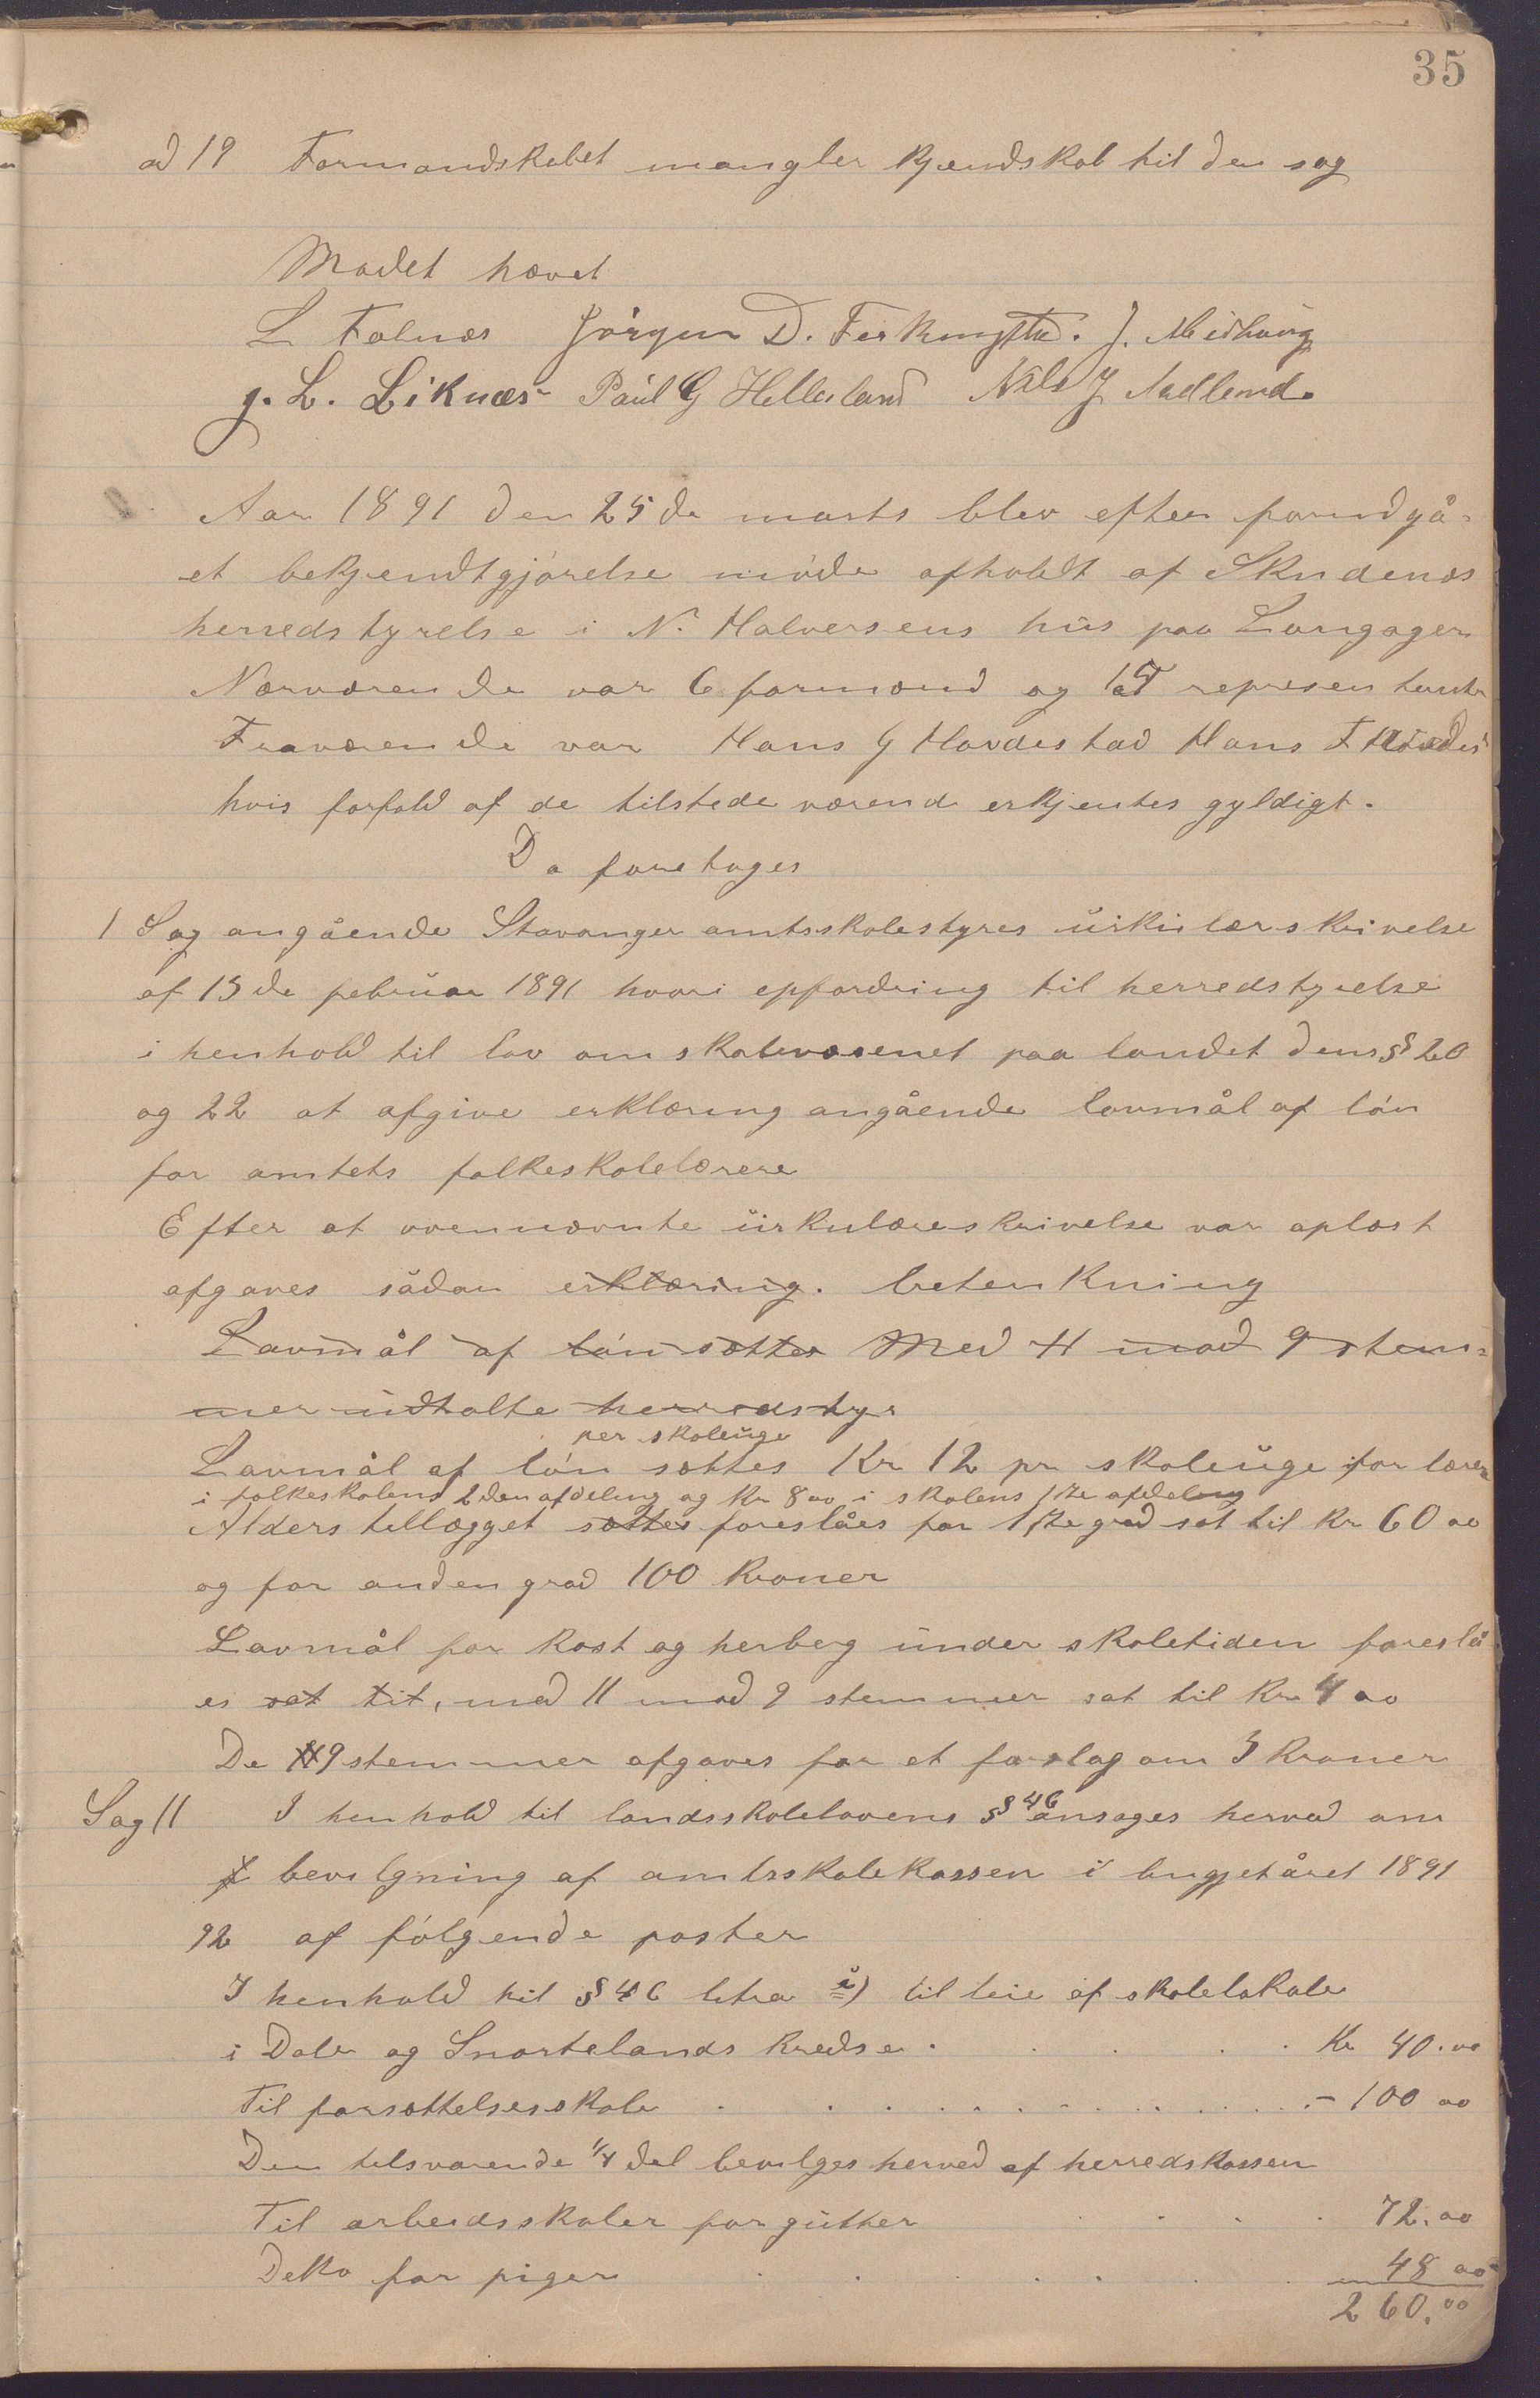 35
ad 19 Formandskabet mangler kjendskab til den sag
Mødet hævet
L Falnes Jörgen D. Ferkingstad. J. Midhaug
g. L. Liknæs Paul G Hellesland Nils J Aadland.
Aar 1891 den 25de marts blev efter forudgå-
et bekjendtgjörelse möde afholdt af Skudenæs
herredstyrelse i N. Halversens hus paa Langager
Nærværende var 6 formænd og representanter
Fraværende var Hans G Hovdestad Hans F
hvis forfald af de tilstedeværend erkjentes gyldigt.
Da foretoges
1 Sag angående Stavanger amtsskolestyres sirkulærskrivelse
af 13de februar 1891 hvori opfordring til herredstyrelse
i henhold til lov om skolevæsenet paa landet dens §§ 20
og 22 at afgive erklæring angående lavmål af lön
for amtets folkeskolelærere
Efter at ovennævnte sirkulæreskrivelse var oplæst
afgaves sådan erklæring. betenkning
Lavmål af lön sættes Med 11 mod 9 stem-
mer udtalte herredstyr
per skoleuge
Lavmål af lön sættes Kr 12 pr skoleuge for lærer
i folkeskolens 2den afdeling og Kr 8 00 i skolens 1ste afdeling
Alders tillægget sættes foreslåes for 1ste grad sat til Kr 60 00
og for anden grad 100 Kroner
Lavmål for kost og herberg under skoletiden foreslå
es sat til, med 11 mod 9 stemmer sat til Kr 4 00
De 9 stemmer afgaves for et forslag om 3 Kroner
Sag 11 I henhold til landsskolelovens § 46 ansøges herved om
bevilgning af amtsskolekassen i bugjetåret 1891
92 af fölgende poster
I henhold til § 46 litra a) til leie af skolelokale
i Dale og Snortelands kredse . . . . . Kr 40.00
Til forsættelsesskole . . . . . . . . . . . . - 100 00
Den tilsvarende 1/4 del bevilges herved af herredskassen
Til arbeidsskoler for gutter . . . . 72.00
Detto for piger . . . . . . 48 00
260.00